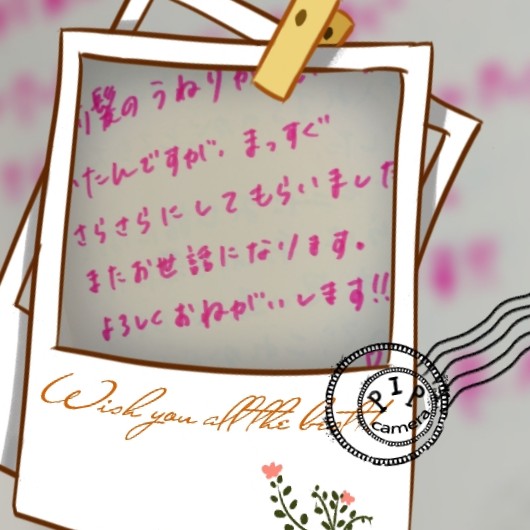 髪のうねりが
たんですが、まっすぐ
さらさらにしてもらいました
またお世話になります。
よろしくおねがいします!!
Wish you all the best
PIP
camera